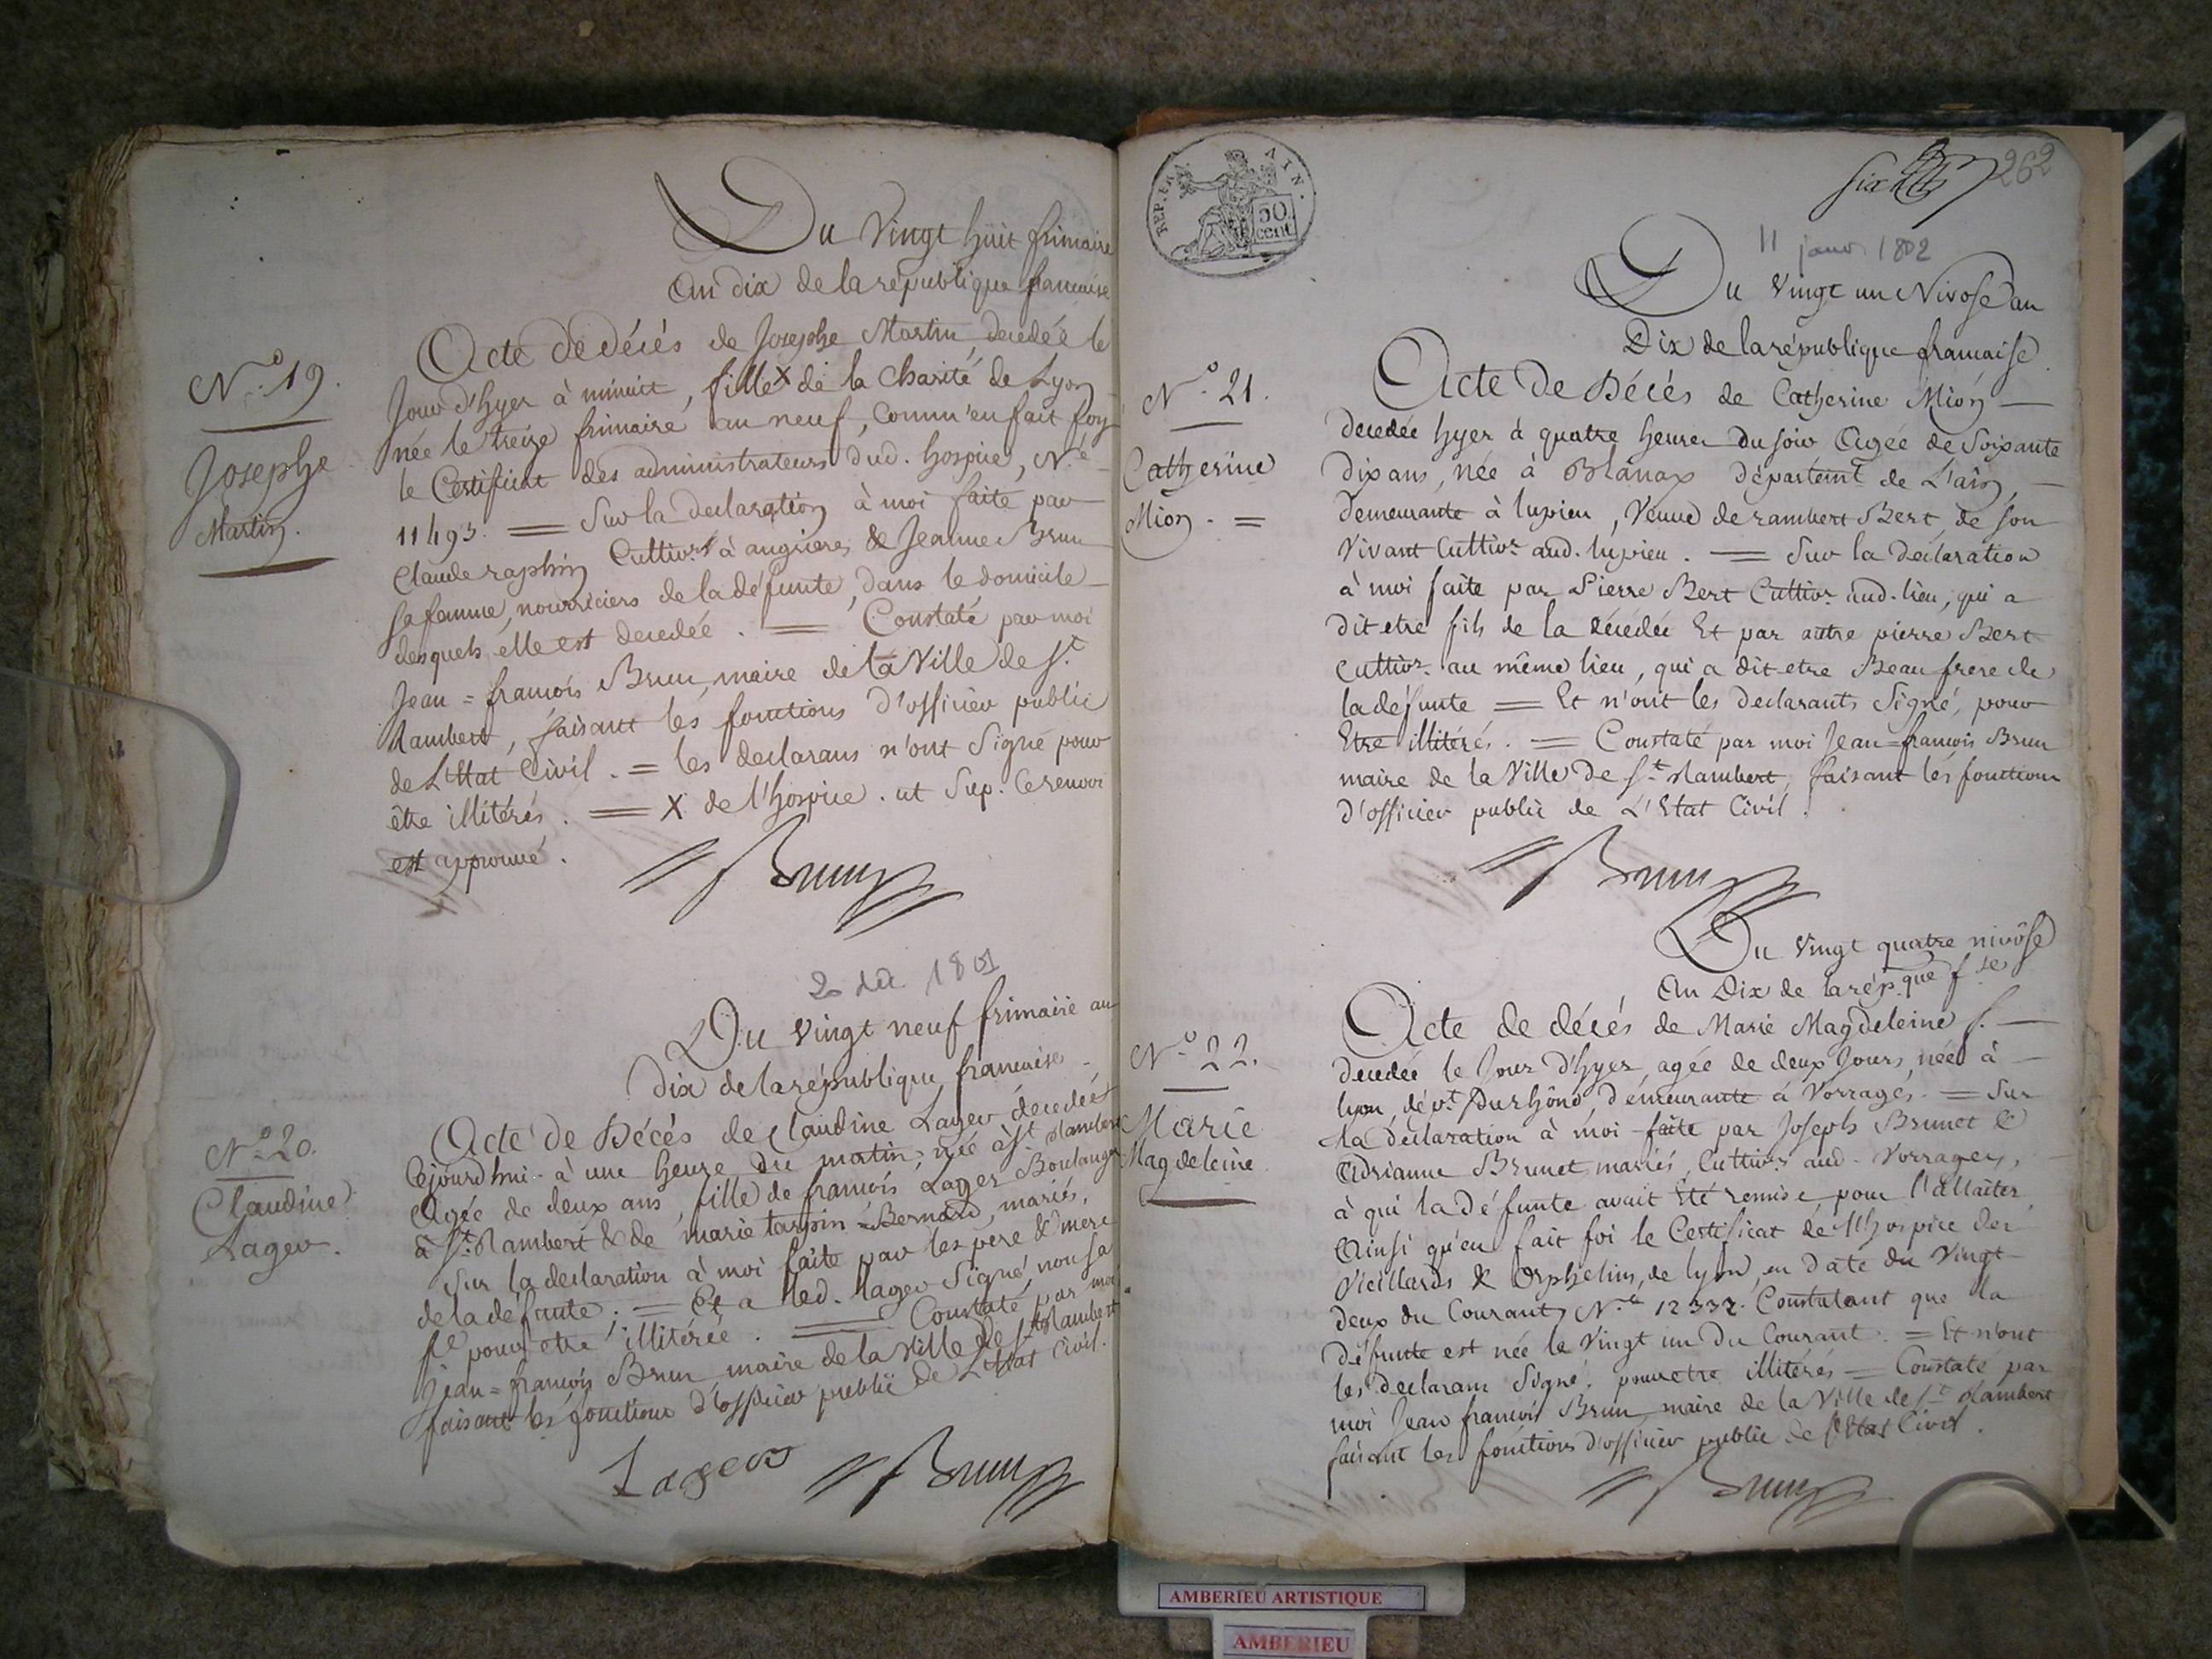 Du Vingt huit frimaire
an dix de la république francaise
N.º 19.
Josephe
Martin.
Acte de décés de Josephe Martin, decedée le
Jour d'hyer à minuit, fille X de la Charité de Lyon
née le treize frimaire an neuf, comm'en fait foy
le Certificat des administrateurs dud. hospice, N.º
11493. = Sur la declaration à moi faite par
Claude raphin Cultivr. à angrieres & Jeanne Brun
sa femme, nourriciers de la défunte, dans le domicile
desquels elle est decedée. = Constaté par moi
Jean = francois Brun, maire de la Ville de St.
Rambert, faisant les fonctions d'officier public
de L'Etat Civil. = les declarans n'ont Signé pour
être illitérés. = X de l'hospice. ut Sup. le renvoi
est approuvé.
Brun
2 déc 1801
Du vingt neuf frimaire an
dix de la république francaise
N.º 20.
Claudine
Lager.
Acte de Décés de Claudine Lager decedée
cejourd'hui à une heure du matin, née à St. Rambert
Agée de deux ans, fille de francois Lager Boulanger
à St. Rambert & de marie tarpin-Bernard, mariés,
Sur la declaration à moi faite par les pere & mere
de la défunte. = Et a led. lager Signé, non sa
fe. pour etre illitérée. = Constaté par moi
Jean = francois Brun maire de la Ville de St. Rambert
faisant les fonctions d'officier public de L'Etat Civil.
Lager Brun
REP. FRA. 50 cent AIN.
six
262
11 janv. 1802
Du Vingt un Nivose an
Dix de la république francaise
N.º 21.
Catherine
Mion. =
Acte de Décés de Catherine Mion
decedée hyer à quatre heures du soir Agée de Soixante
dix ans, née à Blanax départemt. de L'ain,
demeurante à lupieu, Veuve de rambert Bert, de son
Vivant Cultivr. aud. lupieu. = Sur la déclaration
à moi faite par Pierre Bert Cultivr. aud. lieu, qui a
dit etre fils de la décédée Et par autre pierre Bert
cultivr. au même lieu, qui a dit etre Beau frere de
la défunte = Et n'ont les declarants Signé, pour
Etre illitérés. = Constaté par moi Jean = francois Brun
maire de la Ville de St. Rambert, faisant les fonctions
d'officier public de L'Etat Civil.
Brun
Du Vingt quatre nivôse
An Dix de la rép.que f.se
N.º 22.
Marie
Magdeleine
Acte de décés de Marie Magdeleine f.
decedée le Jour d'hyer agée de deux Jours, née à
lyon, dépt. Du rhône demeurante à Vorrages. = Sur
la déclaration à moi faite par Joseph Brunet &
Adrianne Brunet mariés, Cultivrs. aud. Vorrages,
à qui la défunte avait été remise pour l'allaiter
Ainsi qu'en fait foi le Certificat de l'hospice des
Vieillards & Orphelins, de lyon, en date du Vingt
deux du Courant, N.º 12332. Constatant que la
défunte est née le Vingt un du Courant. = Et n'ont
les declarans Signé, pour etre illitérés = Constaté par
moi Jean francois Brun, maire de la Ville de St. Rambert
faisant les fonctions d'officier public de l'Etat Civil.
Brun
AMBERIEU ARTISTIQUE
AMBERIEU